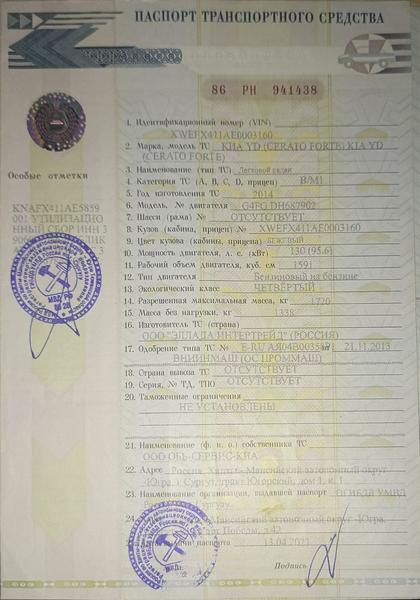 ПАСПОРТ ТРАНСПОРТНОГО СРЕДСТВА
86 РН 941438
Особые отметки
KNAFX411AE5859
001 УТИЛИЗАЦИО
ННЫЙ СБОР ИНН 3
1. Идентификационный номер (VIN)
XWEFX411AE0003160
2. Марка, модель ТС КИА YD (CERATO FORTE) KIA YD
(CERATO FORTE)
3. Наименование (тип ТС) Легковой седан
4. Категория ТС (А, В, С, D, прицеп) B/M1
5. Год изготовления ТС 2014
6. Модель, № двигателя G4FG DH687902
7. Шасси (рама) № ОТСУТСТВУЕТ
8. Кузов (кабина, прицеп) № XWEFX411AE0003160
9. Цвет кузова (кабины, прицепа) БЕЖЕВЫЙ
10. Мощность двигателя, л. с. (кВт) 130 (95.6)
11. Рабочий объем двигателя, куб. см 1591
12. Тип двигателя Бензиновый на бензине
13. Экологический класс ЧЕТВЕРТЫЙ
14. Разрешенная максимальная масса, кг 1720
15. Масса без нагрузки, кг 1338
16. Изготовитель ТС (страна)
ООО "ЭЛЛАДА ИНТЕРТРЕЙД" (РОССИЯ)
17. Одобрение типа ТС № от 21.11.2013
ВНИИНМАШ (ОС ПРОММАШ)
18. Страна вывоза ТС ОТСУТСТВУЕТ
19. Серия, № ТД, ТПО ОТСУТСТВУЕТ
20. Таможенные ограничения
НЕ УСТАНОВЛЕНЫ
21. Наименование (ф. и. о.) собственника ТС
ООО ОБЬ-СЕРВИС-КИА
22. Адрес Россия, Ханты-Мансийский автономный округ
-Югра, г Сургут, тракт Югорский, дом 1, к.1
23. Наименование организации, выдавшей паспорт ОГИБДД УМВД
24. Мансийский автономный округ -Югра,
Победы, д.42
паспорта 13.04.2021
Подпись